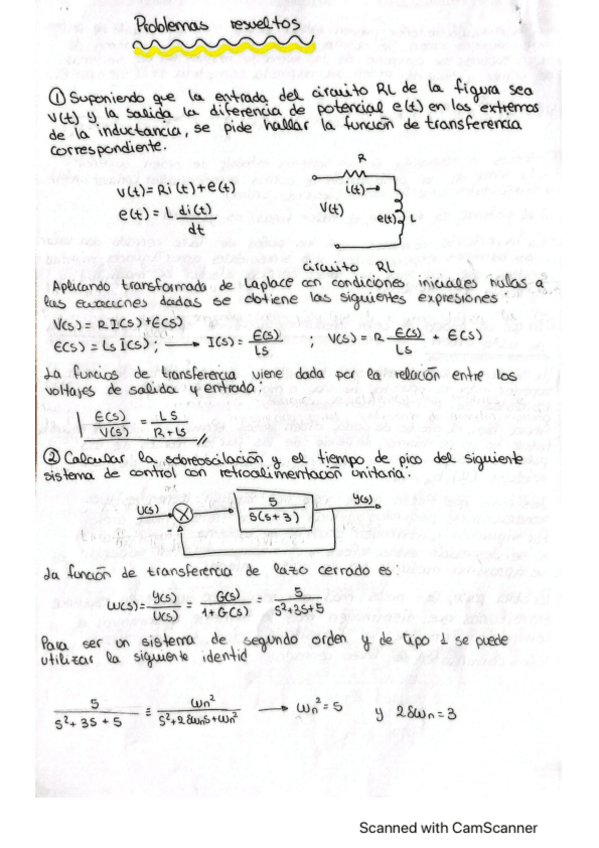 Problemas resueltos
① Suponiendo que la entrada del circuito RL de la figura sea
v(t) y la salida la diferencia de potencial e(t) en los extremos
de la inductancia, se pide hallar la función de transferencia
correspondiente.
R
i(t)→
V(t)
e(t)
L
v(t) = Ri(t) + e(t)
e(t) = L di(t)/dt
circuito RL
Aplicando transformada de Laplace con condiciones iniciales nulas a
las ecuaciones dadas se obtiene las siguientes expresiones:
V(s) = R I(s) + E(s)
E(s) = Ls I(s) ; → I(s) = E(s)/Ls ; V(s) = R E(s)/Ls + E(s)
La funcios de transferencia viene dada por la relación entre los
voltajes de salida y entrada:
E(s)/V(s) = LS/R+Ls
② Calcular la sobreoscilación y el tiempo de pico del siguiente
sistema de control con retroalimentación unitaria:
U(s)
5/S(s+3)
Y(s)
La función de transferencia de lazo cerrado es:
W(s) = Y(s)/U(s) = G(s)/1+G(s) = 5/s²+3s+5
Para ser un sistema de segundo orden y de tipo 1 se puede
utilizar la siguiente identid
5/s²+3s+5 ≡ ωn²/s²+2δωns+ωn² → ωn² = 5 y 2δωn = 3
Scanned with CamScanner